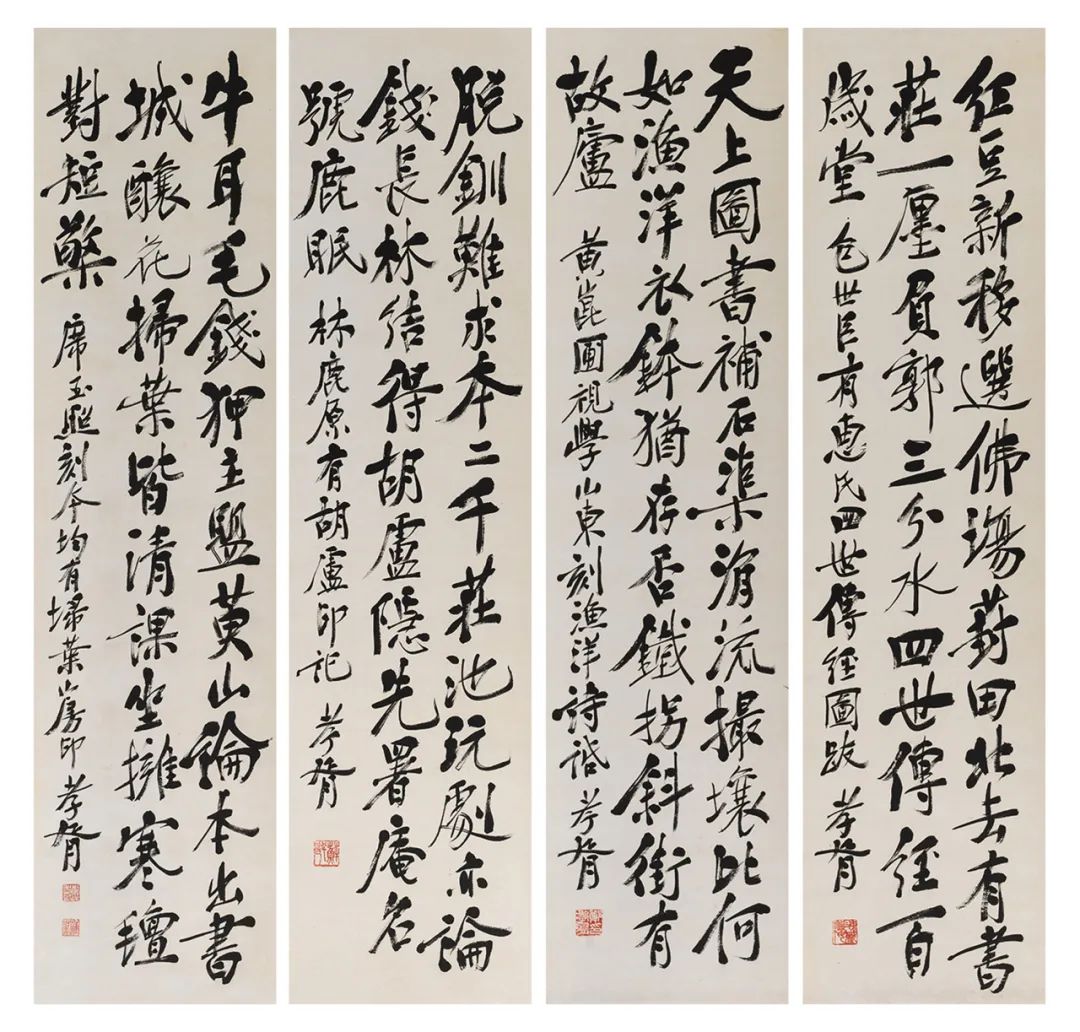 紅豆新移選佛場葑田北去有書
莊一廛負郭三分水四世傳經百
歲堂 包世臣有惠氏四世傳經圖跋 孝胥
天上圖書補石渠涓流撮壤比何
如漁洋衣鉢猶存否鐵拐斜街有
故廬 黃崑圃視學山東刻漁洋詩話 孝胥
脫釧難求本二千莊池玩劇亦論
錢長林結得胡盧隱先署庵名
號鹿眠 林鹿原有胡盧印記 孝胥
牛耳毛錢狎主盟黃山論本出書
城釀花掃葉皆清課坐擁寒氊
對短檠 席玉照刻本均有埽葉山房印 孝胥